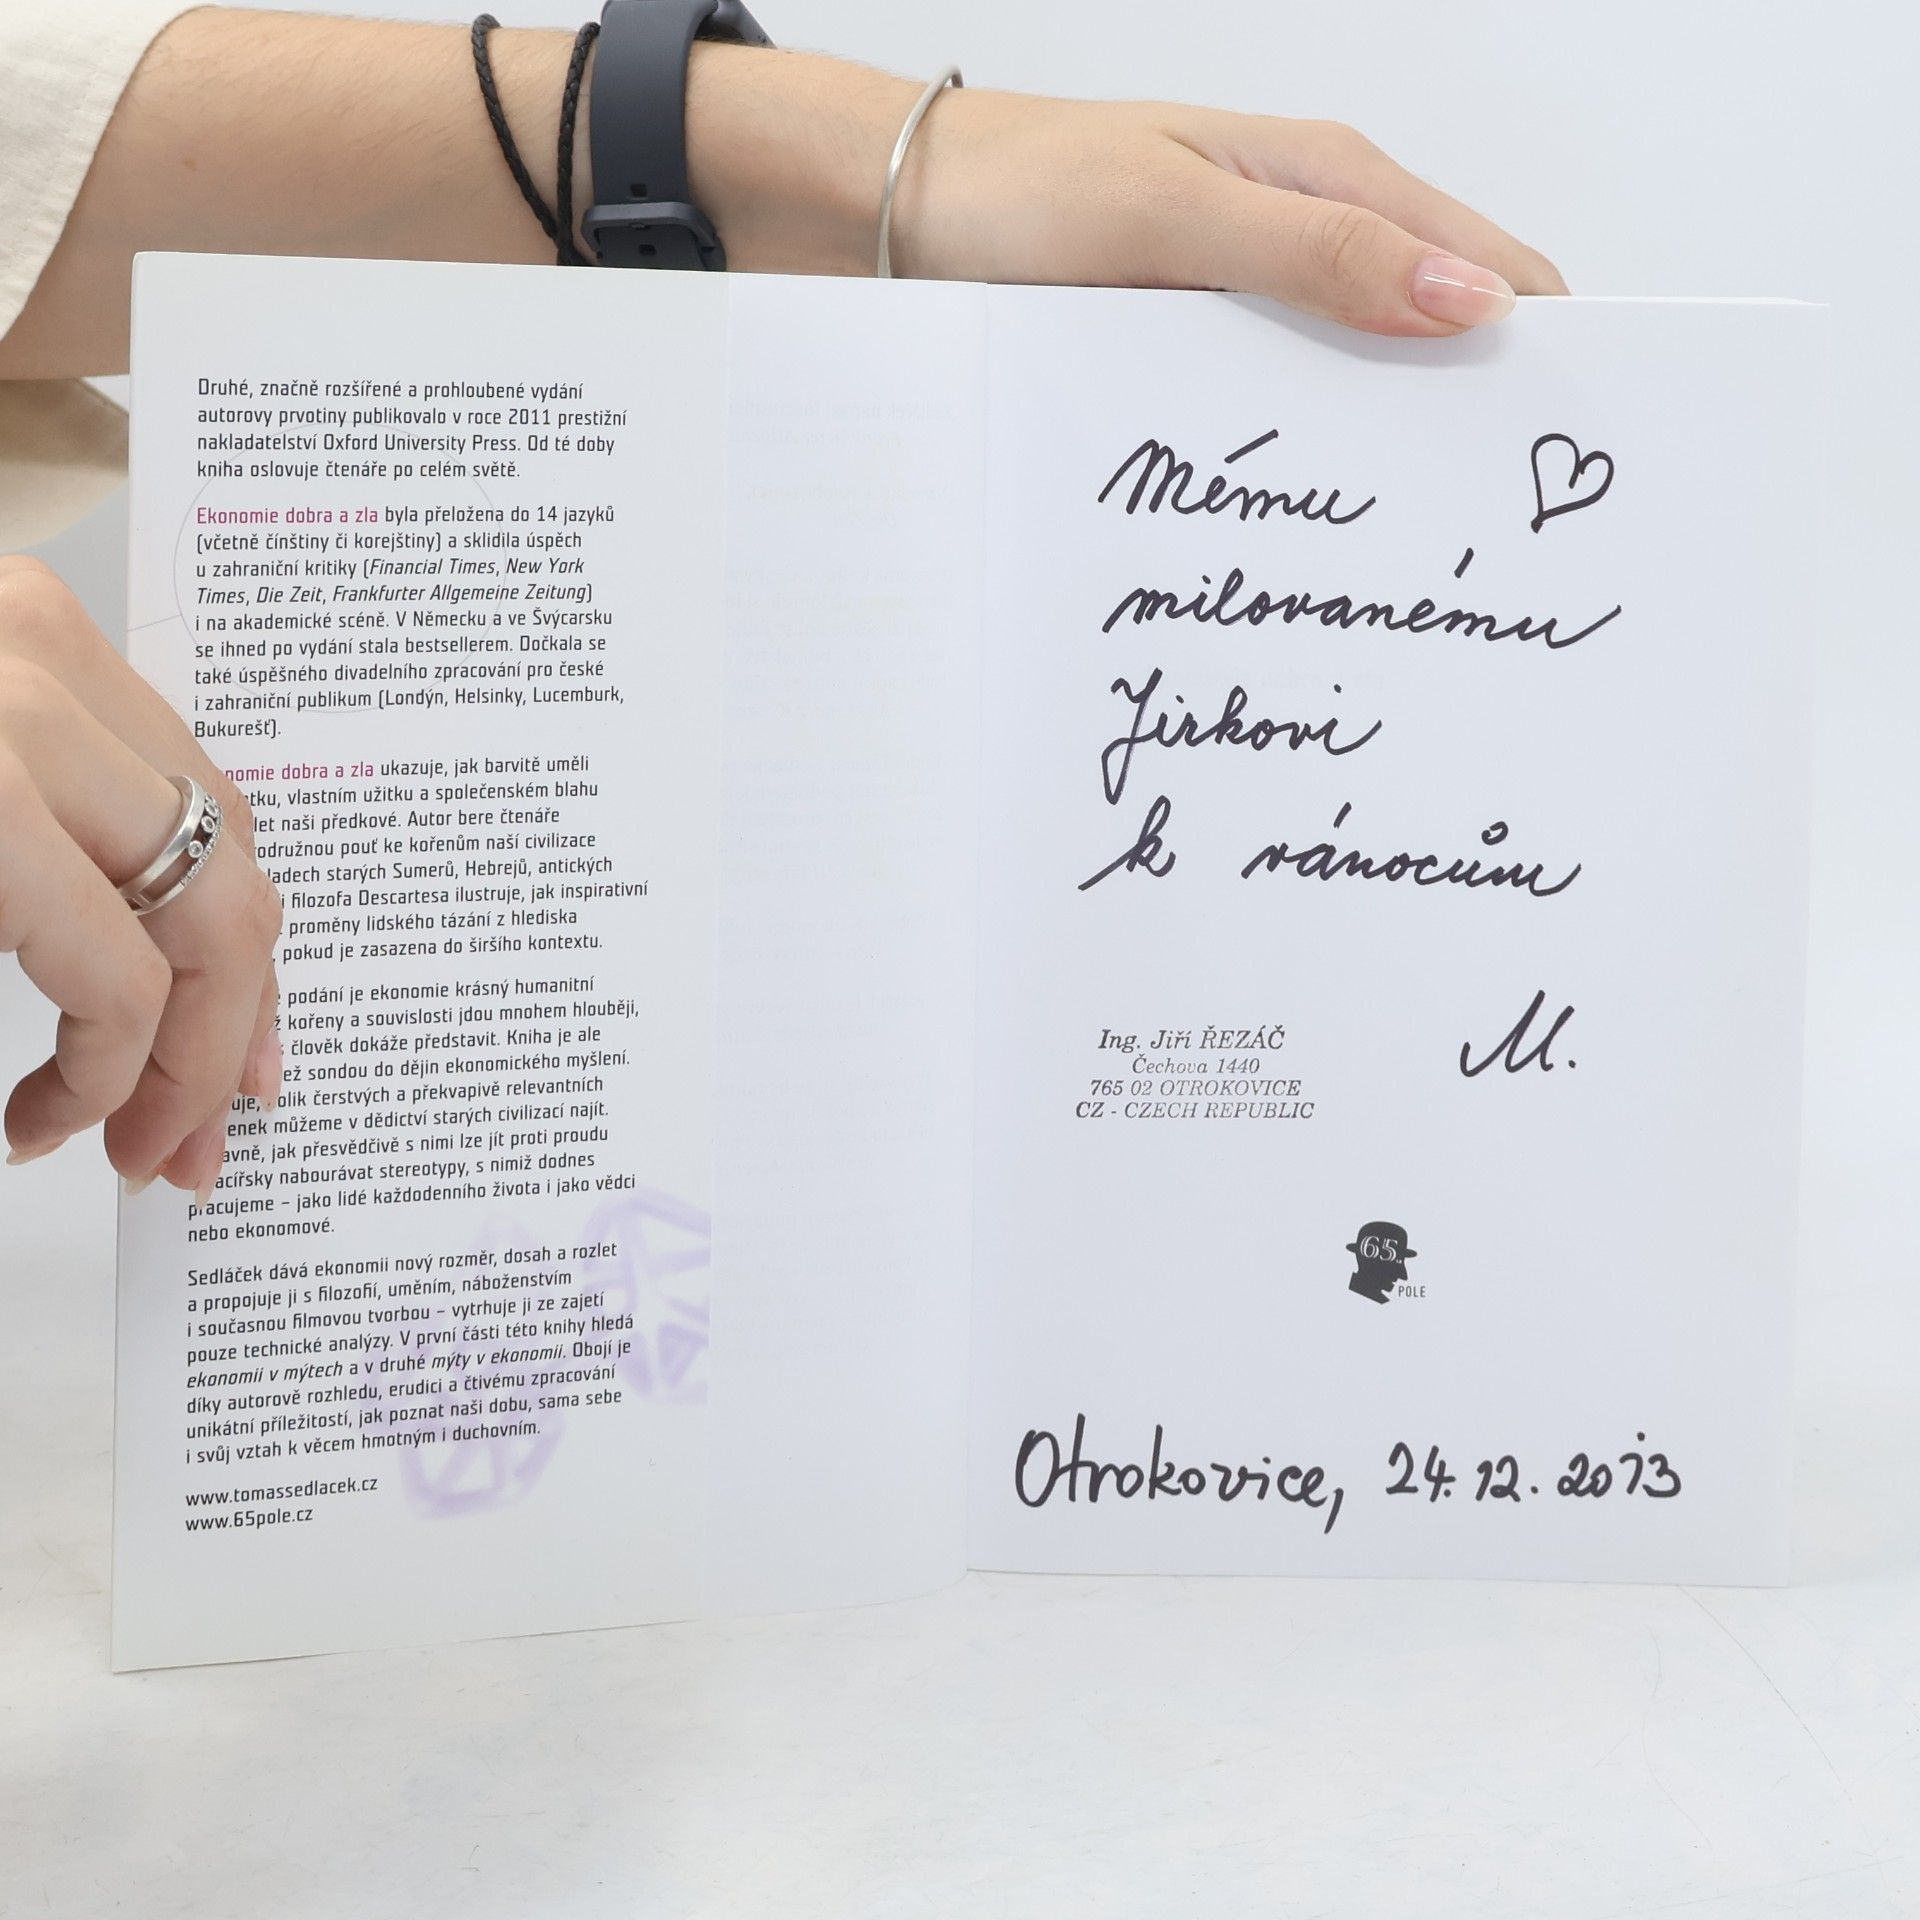 Druhé, značně rozšířené a prohloubené vydání
autorovy prvotiny publikovalo v roce 2011 prestižní
nakladatelství Oxford University Press. Od té doby
kniha oslovuje čtenáře po celém světě.
Ekonomie dobra a zla byla přeložena do 14 jazyků
(včetně čínštiny či korejštiny) a sklidila úspěch
u zahraniční kritiky (Financial Times, New York
Times, Die Zeit, Frankfurter Allgemeine Zeitung)
i na akademické scéně. V Německu a ve Švýcarsku
se ihned po vydání stala bestsellerem. Dočkala se
také úspěšného divadelního zpracování pro české
i zahraniční publikum (Londýn, Helsinky, Lucemburk,
Bukurešť).
nomie dobra a zla ukazuje, jak barvitě uměli
tku, vlastním užitku a společenském blahu
let naši předkové. Autor bere čtenáře
odružnou pouť ke kořenům naší civilizace
ladech starých Sumerů, Hebrejů, antických
i filozofa Descartesa ilustruje, jak inspirativní
proměny lidského tázání z hlediska
, pokud je zasazena do širšího kontextu.
podání je ekonomie krásný humanitní
ž kořeny a souvislosti jdou mnohem hlouběji,
člověk dokáže představit. Kniha je ale
ež sondou do dějin ekonomického myšlení.
uje, olik čerstvých a překvapivě relevantních
enek můžeme v dědictví starých civilizací najít.
avně, jak přesvědčivě s nimi lze jít proti proudu
acířsky nabourávat stereotypy, s nimiž dodnes
pracujeme – jako lidé každodenního života i jako vědci
nebo ekonomové.
Sedláček dává ekonomii nový rozměr, dosah a rozlet
a propojuje ji s filozofií, uměním, náboženstvím
i současnou filmovou tvorbou – vytrhuje ji ze zajetí
pouze technické analýzy. V první části této knihy hledá
ekonomii v mýtech a v druhé mýty v ekonomii. Obojí je
díky autorově rozhledu, erudici a čtivému zpracování
unikátní příležitostí, jak poznat naši dobu, sama sebe
i svůj vztah k věcem hmotným i duchovním.
www.tomassedlacek.cz
www.65pole.cz
Mému
milovanému
Jirkovi
k vánocům
M.
Ing. Jiří ŘEZÁČ
Čechova 1440
765 02 OTROKOVICE
CZ - CZECH REPUBLIC
65.
POLE
Otrokovice, 24. 12. 2013